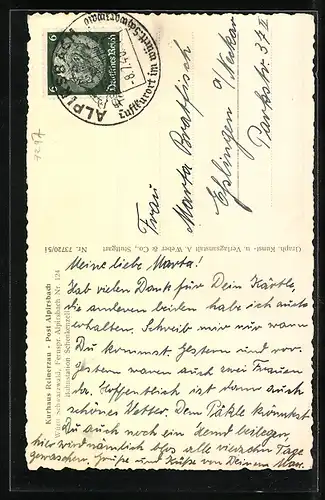 Deutsches Reich
6 6
ALPIRSBACH
-8.7.
Luftkurort im württ. Schwarzwald
7297
Frau
Marta Bratfisch
Eßlingen a/Neckar
Parkstr. 37 II
Graph. Kunst- u. Verlagsanstalt A. Weber & Co., Stuttgart Nr. 73720/51
Kurhaus Reinerzau · Post Alpirsbach
Württ. Schwarzwald, Fernspr. Alpirsbach Nr. 124
Bahnstation Schenkenzell
Meine liebe Marta!
Hab vielen Dank für Dein Kärtle,
die anderen beiden habe ich auch
erhalten. Schreib mir nur wann
Du kommst. Gestern und vor-
gestern waren auch zwei Frauen
da. Hoffentlich ist dann auch
schönes Wetter. Dem Päkle könntest
Du auch noch ein Hemd beilegen,
hier wird nämlich blos alle vierzehn Tage
gewaschen. Grüße und Küße von Deinem